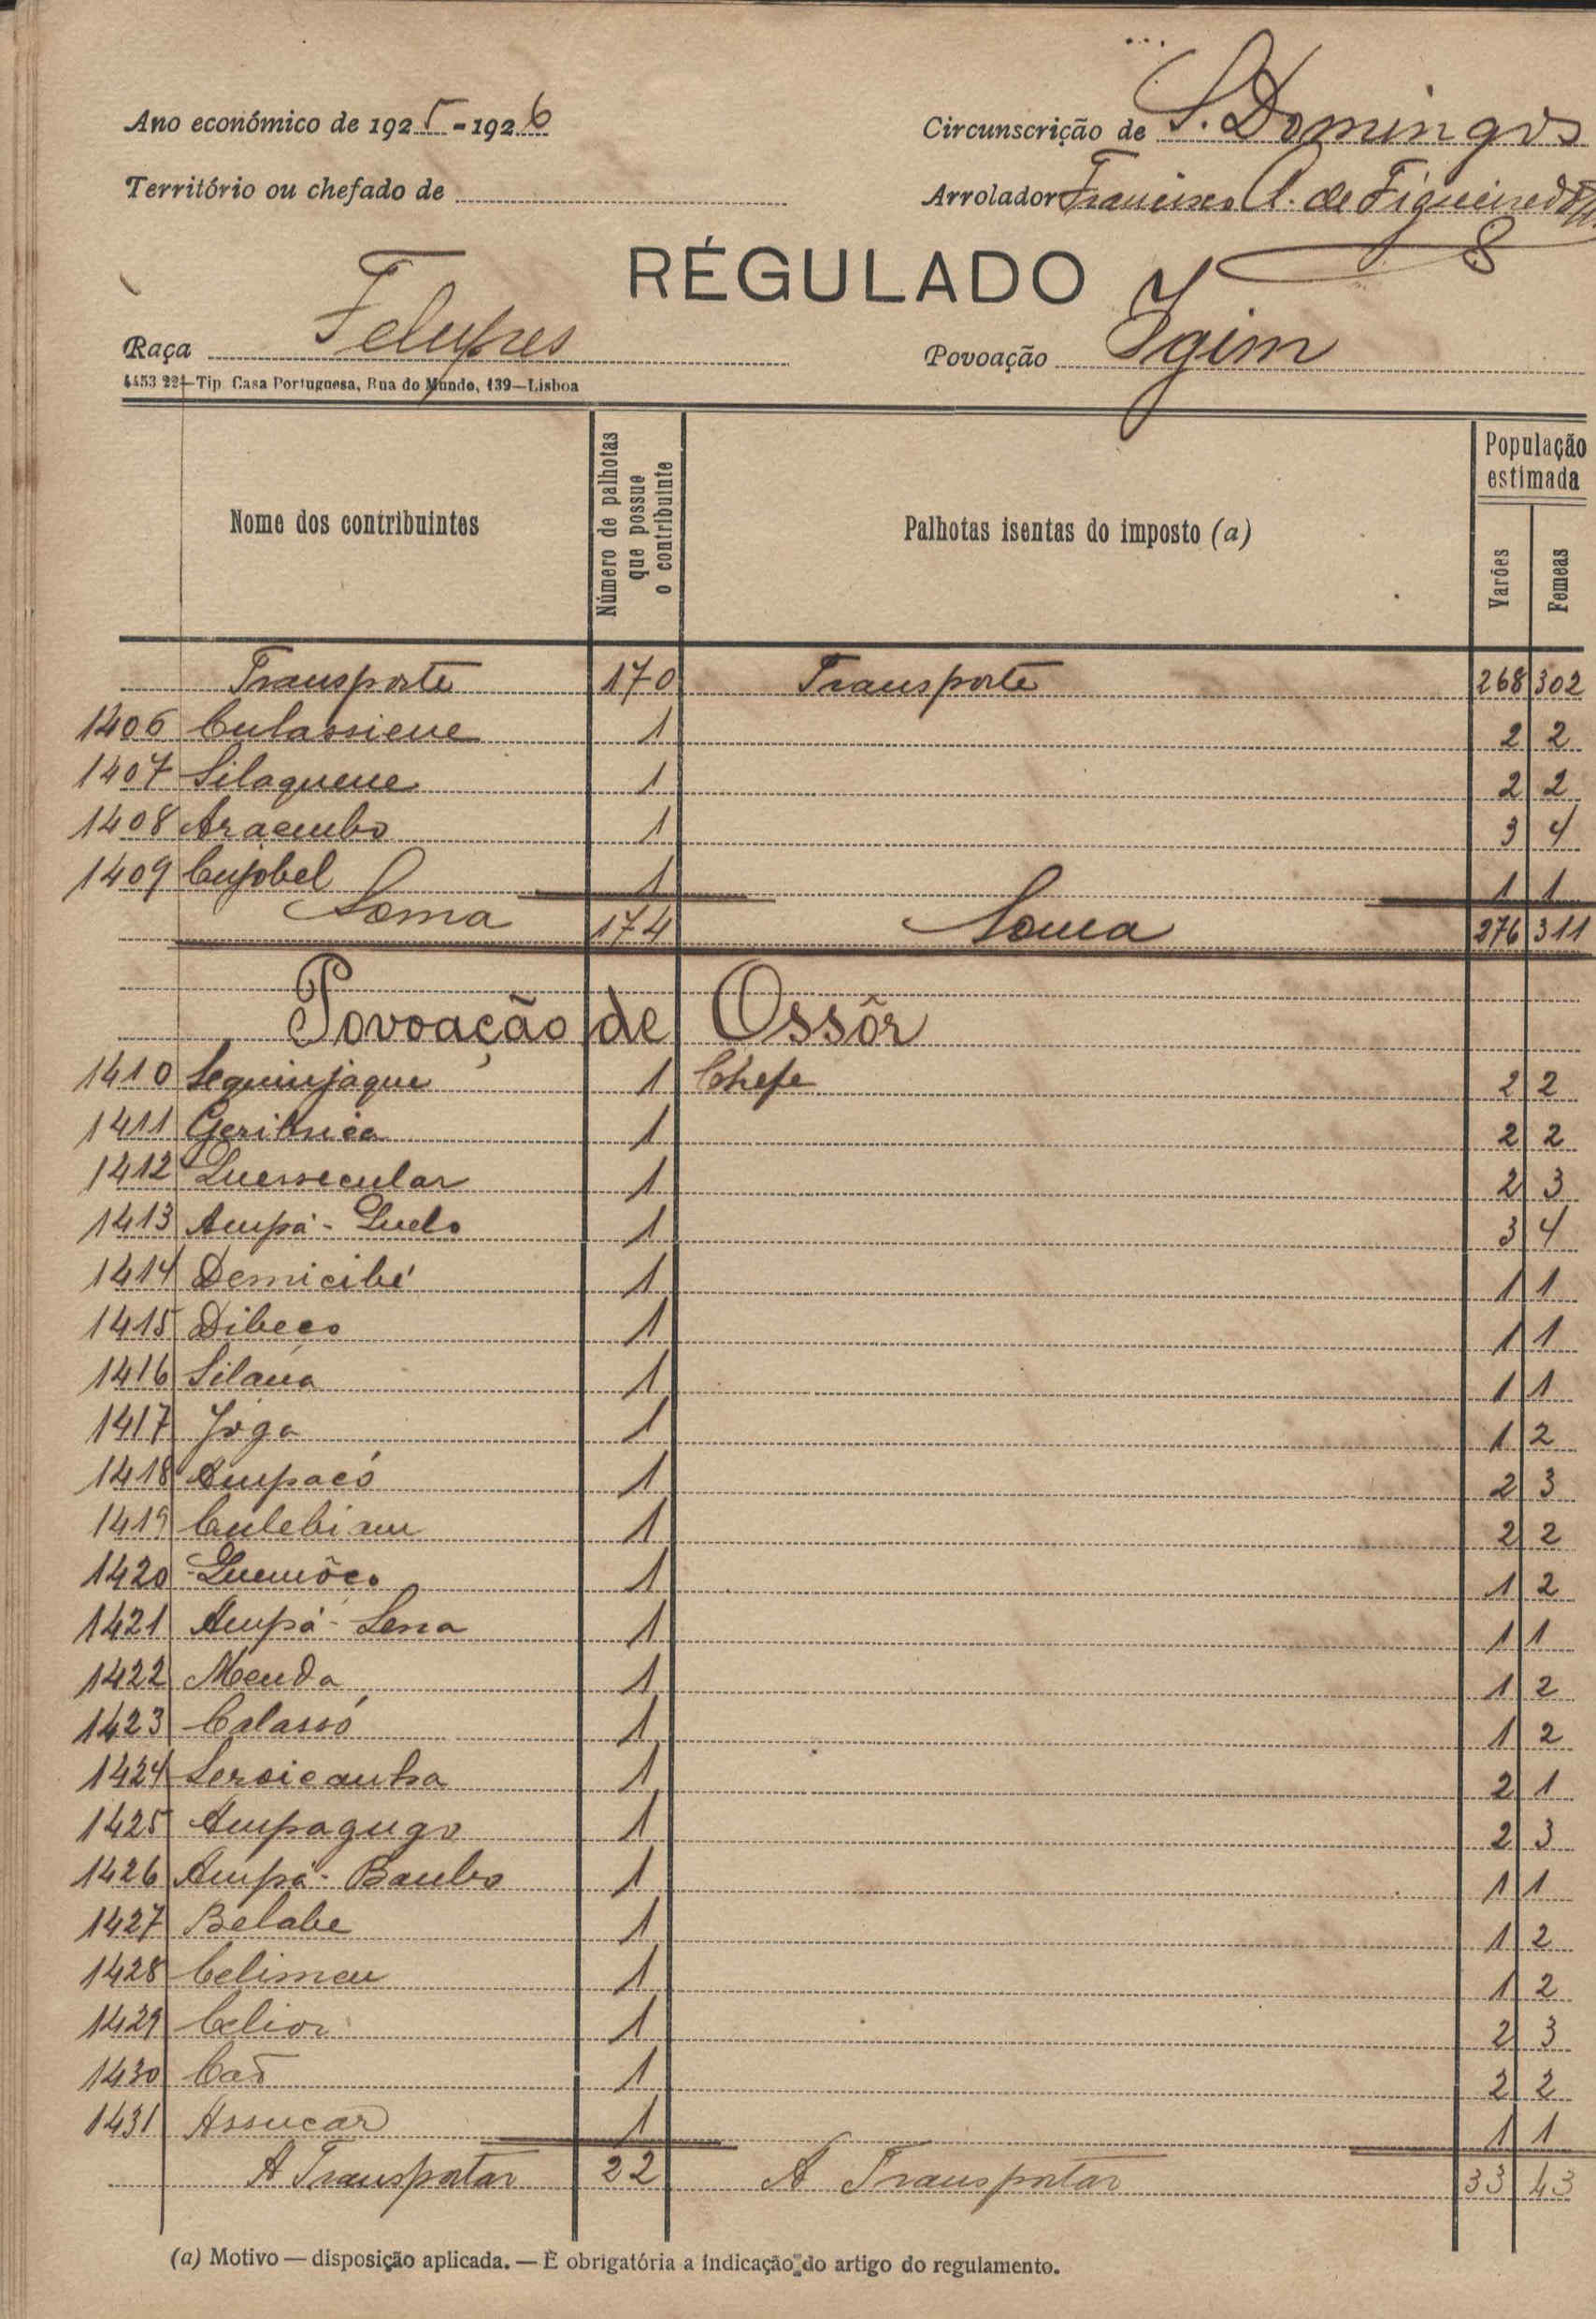 Ano económico de 1925-1926
Circunscrição de S. Domingos
Território ou chefado de
Arrolador Francisco A. de Figueiredo
RÉGULADO
Raça Felupes
Povoação Igim
4453 224—Tip. Casa Portuguesa, Rua do Mundo, 139—Lisboa
Nome dos contribuintes
Número de palhotas que possue o contribuinte
Palhotas isentas do imposto (a)
População estimada
Varões
Femeas
Transporte 170 Transporte 268 302
1406 Culassiene 1 2 2
1407 Silaquene 1 2 2
1408 Aracumbo 1 3 4
1409 Cujobel 1 1 1
Soma 174 Soma 276 311
Povoação de Ossôr
1410 Sequinjaque 1 Chefe 2 2
1411 1 2 2
1412 Quessecular 1 2 3
1413 Ampá-Quelo 1 3 4
1414 Demicibé 1 1 1
1415 Dibeco 1 1 1
1416 Silaná 1 1 1
1417 Joga 1 1 2
1418 Ampacó 1 2 3
1419 Culebiam 1 2 2
1420 Quemôco 1 1 2
1421 Ampá-Sena 1 1 1
1422 Menda 1 1 2
1423 Calassó 1 1 2
1424 1 2 1
1425 Ampagugo 1 2 3
1426 Ampá-Bambo 1 1 1
1427 Belabe 1 1 2
1428 Celimeu 1 1 2
1429 Celior 1 2 3
1430 1 2 2
1431 Assucar 1 1 1
A Transportar 22 A Transportar 33 43
(a) Motivo — disposição aplicada. — É obrigatória a indicação do artigo do regulamento.